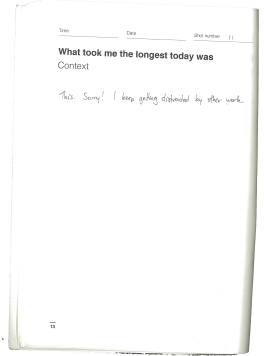 Time
Date
Shot number 11
What took me the longest today was
Context
This. Sorry! I keep getting distracted by other work
13